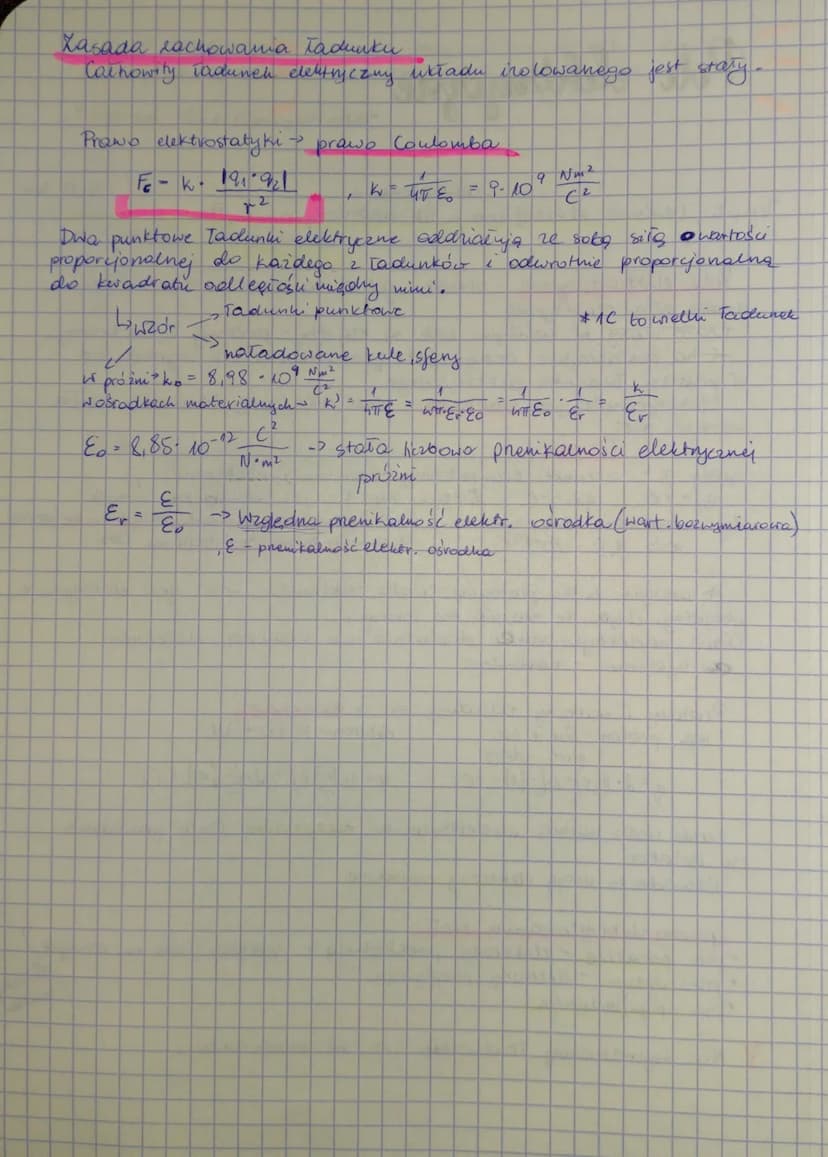 Zasada zachowania ładunku
Całkowity ładunek elektryczny układu izolowanego jest stały.
Prawo elektrostatyki → prawo Coulomba
Fc = k · |q1 · q2| / r² , k = 1/4πε₀ = 9 · 10⁹ Nm²/C²
Dwa punktowe ładunki elektryczne oddziałują ze sobą siłą o wartości
proporcjonalnej do każdego z ładunków i odwrotnie proporcjonalną
do kwadratu odległości między nimi.
↳ wzór → ładunki punktowe * 1C to wielki ładunek
→ naładowane kule, sfery
w próżni → k₀ = 8,98 · 10⁹ Nm²/C²
w ośrodkach materialnych → k' = 1/4πε = 1/4π·εr·ε₀ = 1/4πε₀ · 1/εr = k/εr
ε₀ = 8,85 · 10⁻¹² C²/N·m² → stała liczbowo przenikalności elektrycznej
próżni
εr = ε/ε₀ → względna przenikalność elektr. ośrodka (wart. bezwymiarowa)
, ε - przenikalność elektr. ośrodka